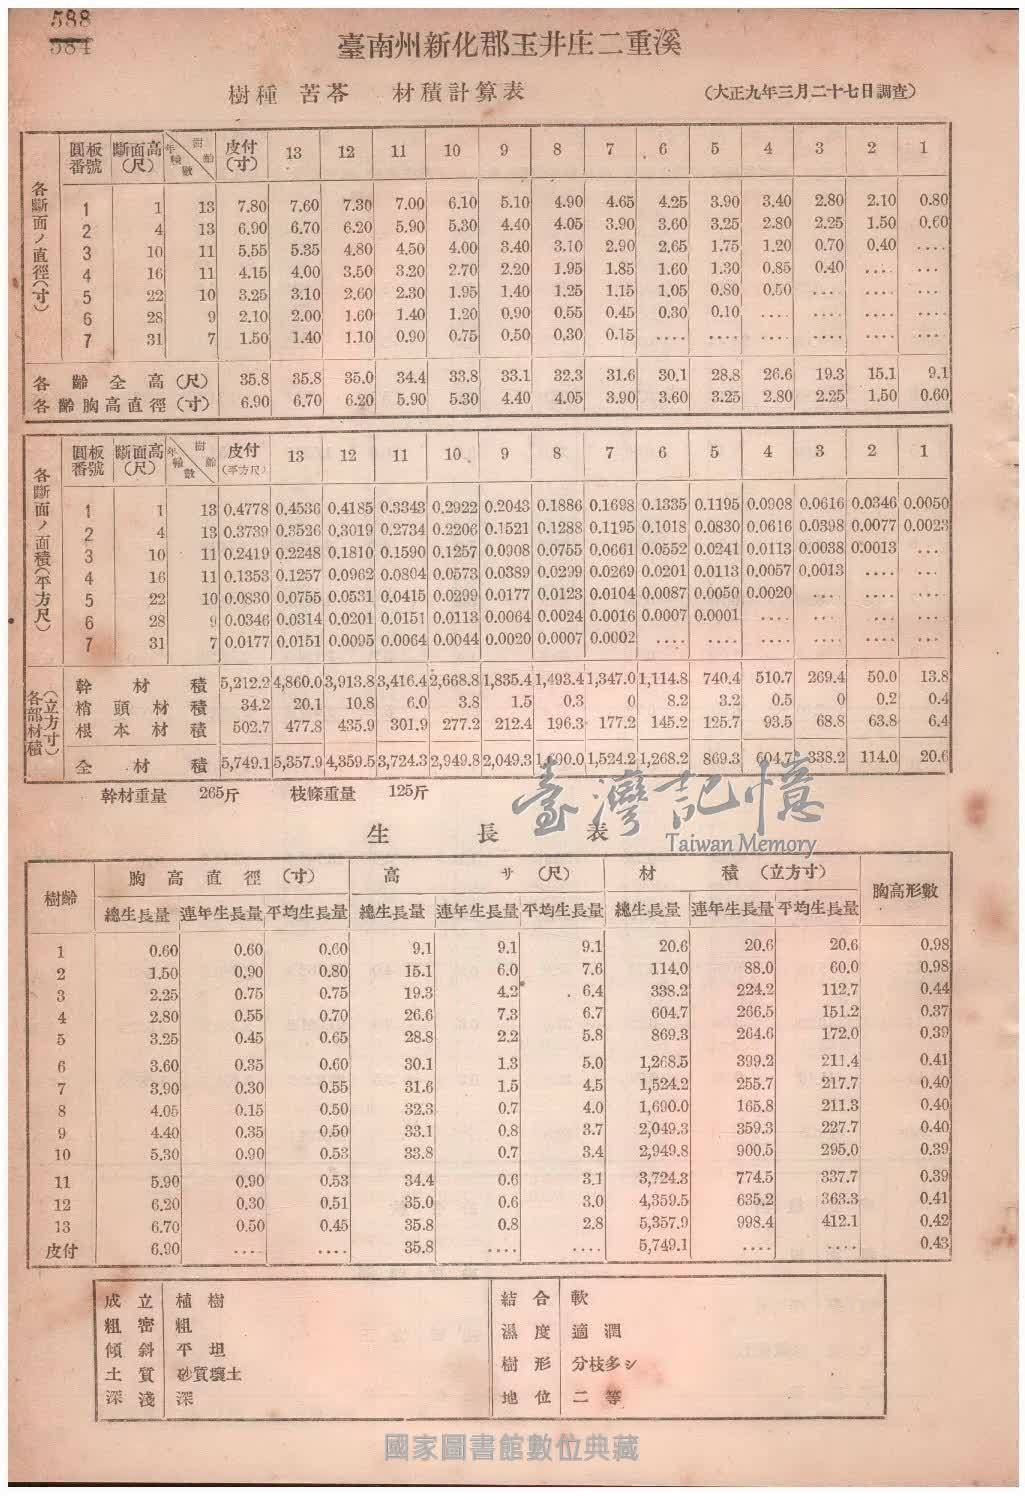 588
584
臺南州新化郡玉井庄二重溪
樹種 苦苓 材積計算表 (大正九年三月二十七日調査)
各斷面ノ直徑(寸)
圓板番號 斷面高(尺) 年輪數 樹齡 皮付(寸) 13 12 11 10 9 8 7 6 5 4 3 2 1
1 1 13 7.80 7.60 7.30 7.00 6.10 5.10 4.90 4.65 4.25 3.90 3.40 2.80 2.10 0.80
2 4 13 6.90 6.70 6.20 5.90 5.30 4.40 4.05 3.90 3.60 3.25 2.80 2.25 1.50 0.60
3 10 11 5.55 5.35 4.80 4.50 4.00 3.40 3.10 2.90 2.65 1.75 1.20 0.70 0.40 ....
4 16 11 4.15 4.00 3.50 3.20 2.70 2.20 1.95 1.85 1.60 1.30 0.85 0.40 .... ...
5 22 10 3.25 3.10 2.60 2.30 1.95 1.40 1.25 1.15 1.05 0.80 0.50 ... .... ...
6 28 9 2.10 2.00 1.60 1.40 1.20 0.90 0.55 0.45 0.30 0.10 .... .... .... ...
7 31 7 1.50 1.40 1.10 0.90 0.75 0.50 0.30 0.15 .... .... .... .... .... ...
各齡全高(尺) 35.8 35.8 35.0 34.4 33.8 33.1 32.3 31.6 30.1 28.8 26.6 19.3 15.1 9.1
各齡胸高直徑(寸) 6.90 6.70 6.20 5.90 5.30 4.40 4.05 3.90 3.60 3.25 2.80 2.25 1.50 0.60
各斷面ノ面積(平方尺)
圓板番號 斷面高(尺) 年輪數 樹齡 皮付(平方尺) 13 12 11 10 9 8 7 6 5 4 3 2 1
1 1 13 0.4778 0.4536 0.4185 0.3343 0.2922 0.2043 0.1886 0.1698 0.1335 0.1195 0.0908 0.0616 0.0346 0.0050
2 4 13 0.3739 0.3526 0.3019 0.2734 0.2206 0.1521 0.1288 0.1195 0.1018 0.0830 0.0616 0.0398 0.0077 0.0023
3 10 11 0.2419 0.2248 0.1810 0.1590 0.1257 0.0908 0.0755 0.0661 0.0552 0.0241 0.0113 0.0038 0.0013 ...
4 16 11 0.1353 0.1257 0.0962 0.0804 0.0573 0.0389 0.0299 0.0269 0.0201 0.0113 0.0057 0.0013 .... ...
5 22 10 0.0830 0.0755 0.0531 0.0415 0.0299 0.0177 0.0123 0.0104 0.0087 0.0050 0.0020 ... .... ...
6 28 9 0.0346 0.0314 0.0201 0.0151 0.0113 0.0064 0.0024 0.0016 0.0007 0.0001 .... ... .... ...
7 31 7 0.0177 0.0151 0.0095 0.0064 0.0044 0.0020 0.0007 0.0002 .... .... .... .... .... ...
各部材積(立方寸)
幹材積 5,212.2 4,860.0 3,913.8 3,416.4 2,668.8 1,835.4 1,493.4 1,347.0 1,114.8 740.4 510.7 269.4 50.0 13.8
梢頭材積 34.2 20.1 10.8 6.0 3.8 1.5 0.3 0 8.2 3.2 0.5 0 0.2 0.4
根本材積 502.7 477.8 435.9 301.9 277.2 212.4 196.3 177.2 145.2 125.7 93.5 68.8 63.8 6.4
全材積 5,749.1 5,357.9 4,359.5 3,724.3 2,949.8 2,049.3 1,690.0 1,524.2 1,268.2 869.3 604.7 338.2 114.0 20.6
幹材重量 265斤 枝條重量 125斤
臺灣記憶
Taiwan Memory
生長表
樹齡 胸高直徑(寸) 高サ(尺) 材積(立方寸) 胸高形數
總生長量 連年生長量 平均生長量 總生長量 連年生長量 平均生長量 總生長量 連年生長量 平均生長量
1 0.60 0.60 0.60 9.1 9.1 9.1 20.6 20.6 20.6 0.98
2 1.50 0.90 0.80 15.1 6.0 7.6 114.0 88.0 60.0 0.98
3 2.25 0.75 0.75 19.3 4.2 6.4 338.2 224.2 112.7 0.44
4 2.80 0.55 0.70 26.6 7.3 6.7 604.7 266.5 151.2 0.37
5 3.25 0.45 0.65 28.8 2.2 5.8 869.3 264.6 172.0 0.39
6 3.60 0.35 0.60 30.1 1.3 5.0 1,268.5 399.2 211.4 0.41
7 3.90 0.30 0.55 31.6 1.5 4.5 1,524.2 255.7 217.7 0.40
8 4.05 0.15 0.50 32.3 0.7 4.0 1,690.0 165.8 211.3 0.40
9 4.40 0.35 0.50 33.1 0.8 3.7 2,049.3 359.3 227.7 0.40
10 5.30 0.90 0.53 33.8 0.7 3.4 2,949.8 900.5 295.0 0.39
11 5.90 0.90 0.53 34.4 0.6 3.1 3,724.3 774.5 337.7 0.39
12 6.20 0.30 0.51 35.0 0.6 3.0 4,359.5 635.2 363.3 0.41
13 6.70 0.50 0.45 35.8 0.8 2.8 5,357.9 998.4 412.1 0.42
皮付 6.90 .... .... 35.8 .... .... 5,749.1 .... .... 0.43
成立 植樹 結合 軟
粗密 粗 濕度 適潤
傾斜 平坦 樹形 分枝多シ
土質 砂質壤土 地位 二等
深淺 深
國家圖書館數位典藏